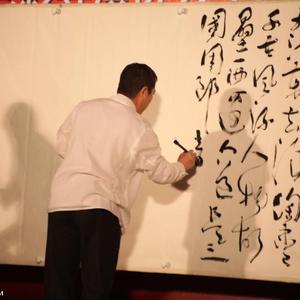 大江东去浪淘尽
千古风流人物故
垒西边人道是三
国周郎赤